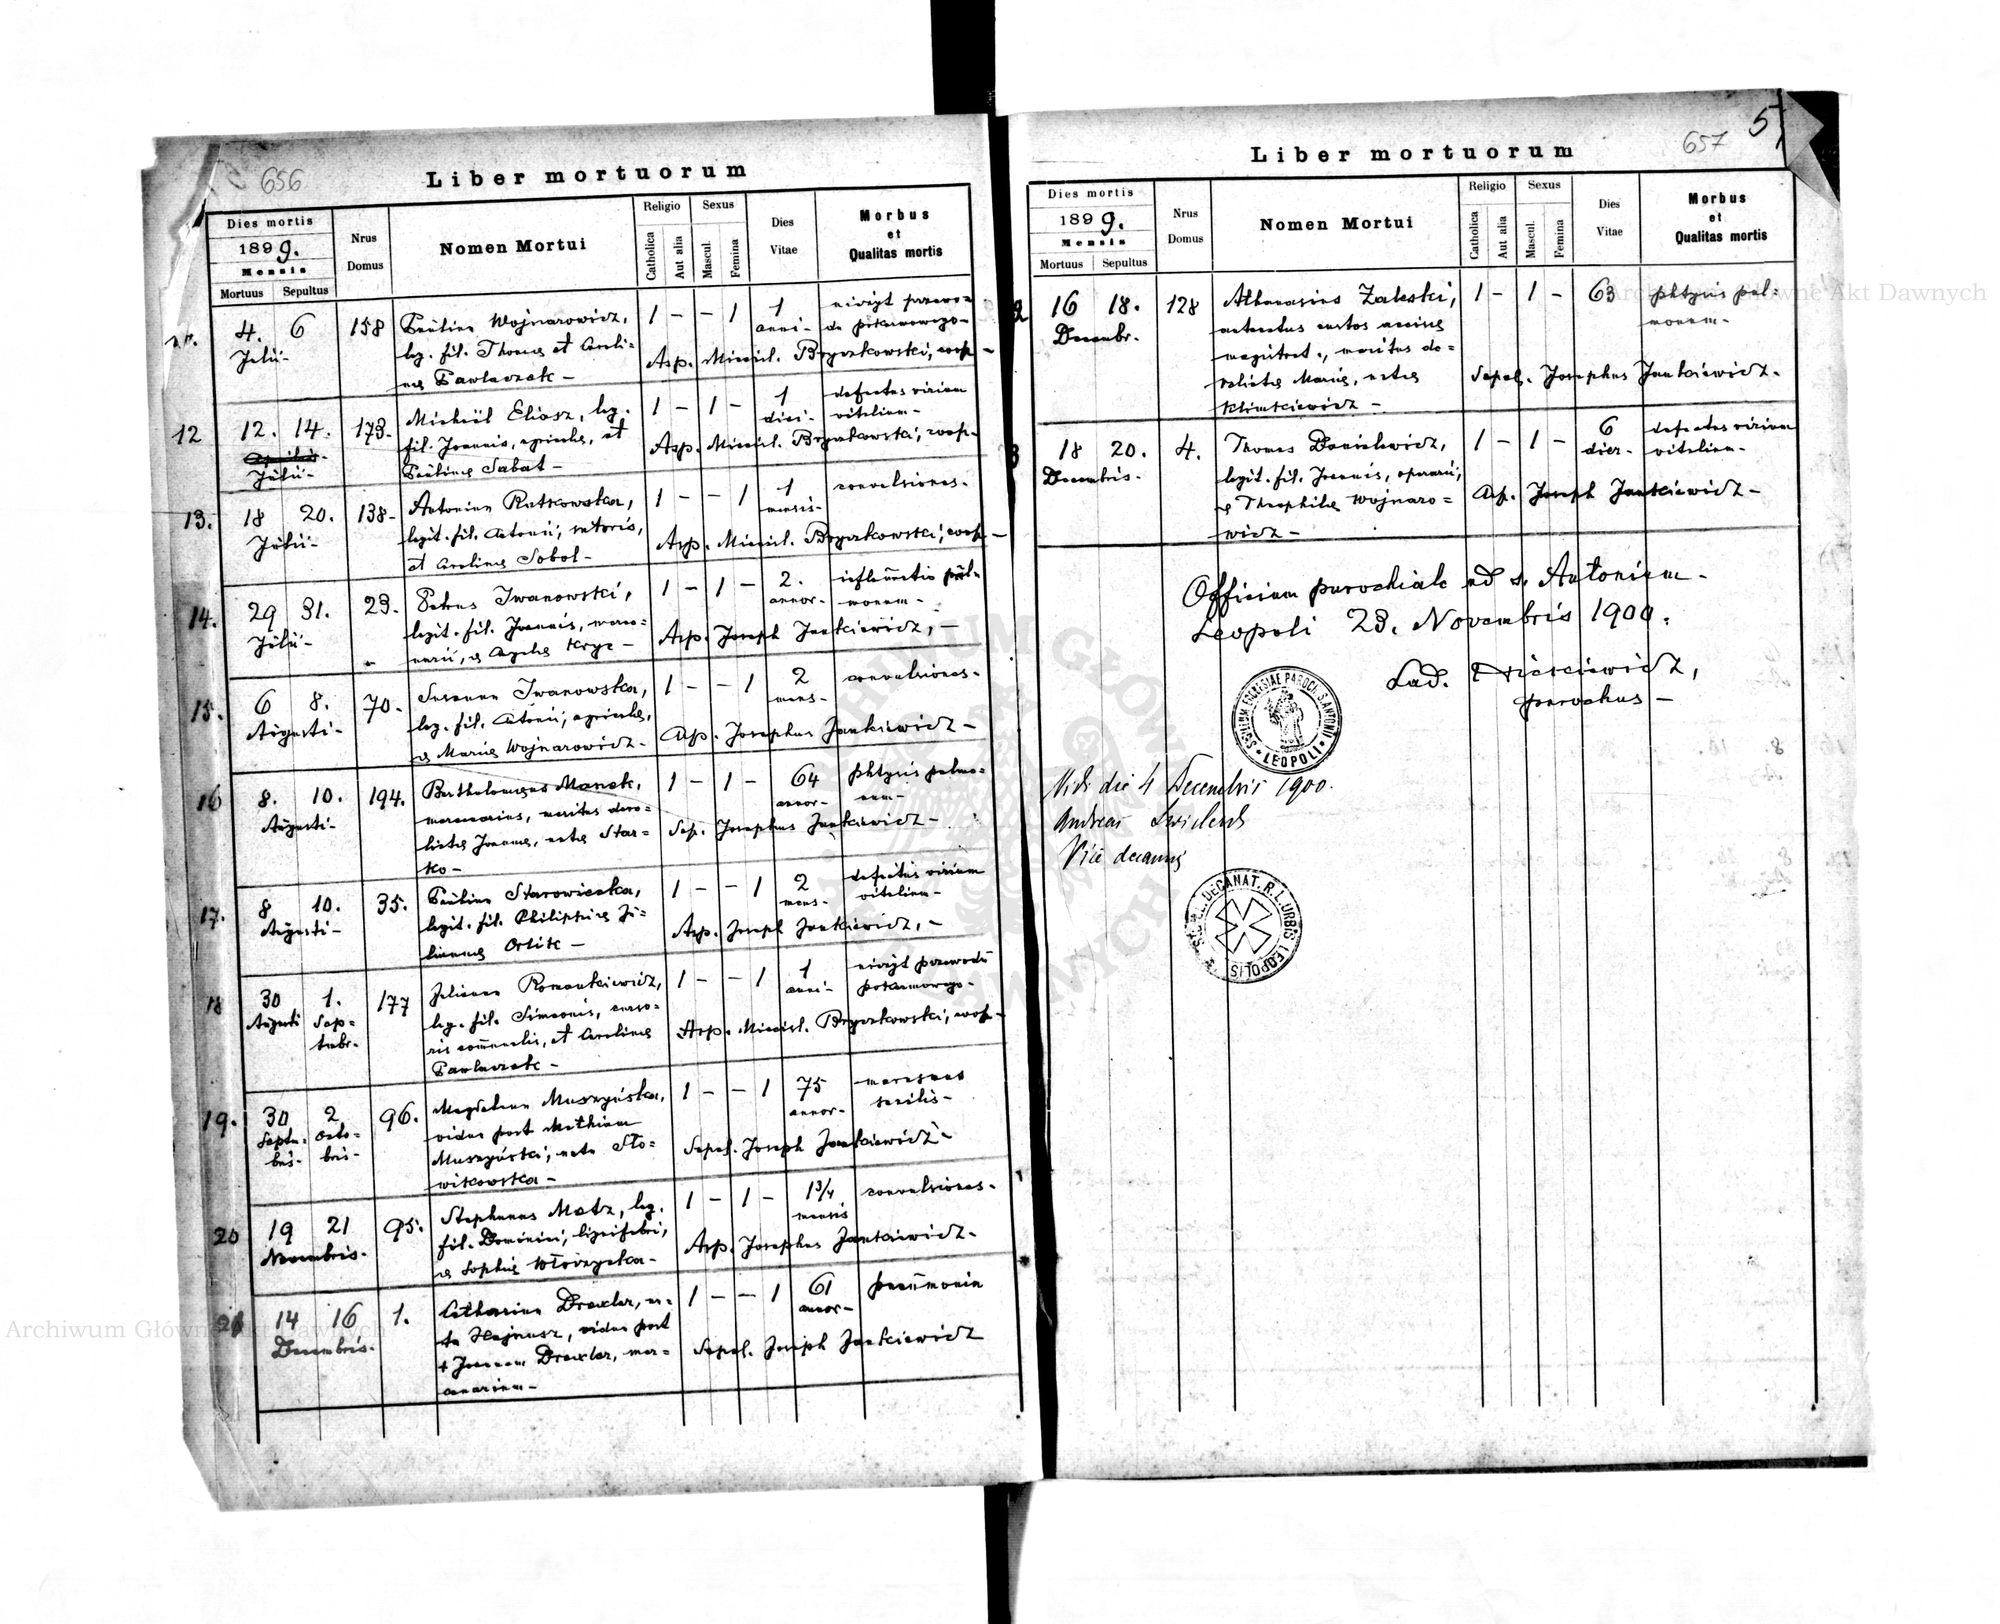 656
Liber mortuorum
Dies mortis
1899.
Mensis
Mortuus Sepultus
Nrus Domus
Nomen Mortui
Religio
Catholica
Aut alia
Sexus
Mascul.
Femina
Dies Vitae
Morbus
et
Qualitas mortis
4. 6 158 Paulina Wojnarowicz, 1 – – 1 1
Julii anni
leg. fil. Thomae et Caroli=
nae Pawlaczek –
Asp. Bryczkowski, coop –
12 12. 14. 173. Michaël Eliasz, leg. 1 – 1 – 1 defectus virium
Julii diei vitalium –
fil. Joannis, agricolae, et
Paulinae Sabat –
Asp. Bryczkowski, coop –
13. 18 20. 138 Antonina Rutkowska, 1 – – 1 1 convulsiones –
Julii mensis
legit. fil. Antonii, sutoris,
et Carolinae Sobol –
Asp. Bryczkowski, coop –
14. 29 31. 23. Petrus Iwanowski, 1 – 1 – 2.
Julii annor.
legit. fil. Joannis, merce=
narii,
Asp. Joseph Jankiewicz, –
15. 6 8. 70. Susanna Iwanowska, 1 – – 1 2 convulsiones –
Augusti mens.
leg. fil. Antonii, agricolae,
et Mariae Wojnarowicz –
Asp. Josephus Jankiewicz –
16 8. 10. 194. Bartholomaeus Manek, 1 – 1 – 64 phtysis pulmo=
Augusti annor. num –
mercenarius, maritus dere=
lictae Joannae, natae Star=
ko –
Sep. Josephus Jankiewicz –
17. 8 10. 35. Paulina Starowieska, 1 – – 1 2 defectus virium
Augusti mens. vitalium –
legit. fil. Philippi et Ju=
liannae
Asp. Joseph Jankiewicz, –
18 30 1. 177 Juliana Romankiewicz, 1 – – 1 1 nieżyt przewodu
Augusti Sep= anni pokarmowego –
tembr.
leg. fil. Simeonis, curso=
ris communalis, et Carolinae
Pawlaczek –
Asp. Bryczkowski, coop –
19. 30 2 96. Magdalena Muszyńska, 1 – – 1 75 marasmus
Septem= Octo= annor. senilis –
bris bris
vidua post Mathiam
Muszyński, nata Sło=
wikowska –
Sepel. Joseph Jankiewicz –
20 19 21 95. Stephanus Matz, leg. 1 – 1 – 1 3/4 convulsiones –
Novembris mensis
fil. Dominici, lignifabri,
et Sophiae
Asp. Josephus Jankiewicz –
21 14 16 1. Catharina Drexler, na= 1 – – 1 61 pneumonia
Decembris annor.
ta Hajnusz, vidua post
+ Joannem Drexler, mer=
cenarium –
Sepel. Joseph Jankiewicz
657
5
Liber mortuorum
Dies mortis
1899.
Mensis
Mortuus Sepultus
Nrus Domus
Nomen Mortui
Religio
Catholica
Aut alia
Sexus
Mascul.
Femina
Dies Vitae
Morbus
et
Qualitas mortis
16 18. 128 Athanasius Zaleski, 1 – 1 – 63 phtysis pul=
Decembr. monum –
custos
magistrat., maritus de=
relictae Mariae, natae
Klimkiewicz –
Sepel. Josephus Jankiewicz –
18 20. 4. Thomas Danilewicz, 1 – 1 – 6 defectus virium
Decembris dier. vitalium –
legit. fil. Joannis, operarii,
et Theophilae Wojnaro=
wicz –
Asp. Joseph Jankiewicz –
Officium parochiale ad s. Antonium –
Leopoli 23. Novembris 1900.
Lad.
parochus –
SIGILLUM ECCLESIAE PAROCH. S. ANTONII
LEOPOLI
Vidi die 4 Decembris 1900.
Andreas
Vice decanus
DECANAT. R. L. URBIS LEOPOLIS
Archiwum Główne Akt Dawnych
Archiwum Główne Akt Dawnych